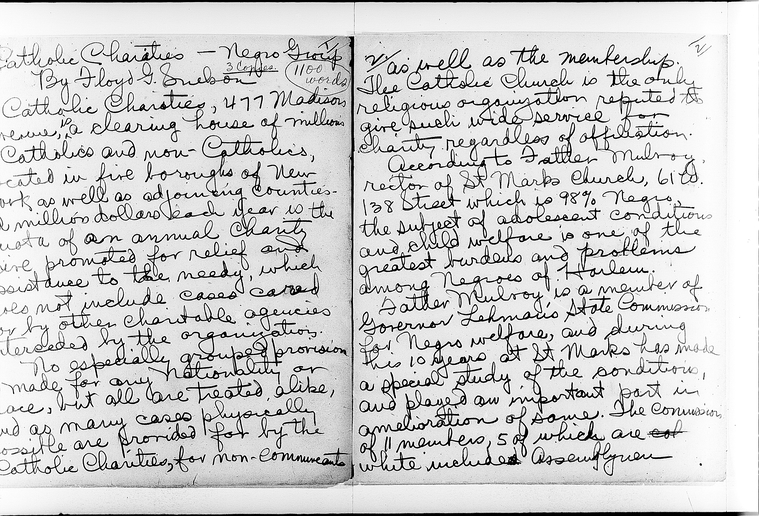 Catholic Charities — Negro Group
1
3 Copies
1100 words
By Floyd G. Snelson
Catholic Charities, 477 Madison
venue, is a clearing house of millions
Catholics and non-Catholics,
ocated in five boroughs of New
ork as well as adjoining counties.
million dollars each year is the
uota of an annual charity
ive promoted for relief and
ssistance to the needy, which
oes not include cases cared
or by other charitable agencies
nterceded by the organization.
No especially grouped provision
made for any nationality or
ace, but all are treated alike,
nd as many cases physically
ossible are provided for by the
Catholic Charities, for non-communicants
2/
2/ as well as the membership.
The Catholic Church is the only
religious organization reputed to
give such wide service for
charity regardless of affiliation.
According to Father Mulroy,
rector of St. Marks Church, 61 W.
138 Street which is 98% Negro,
the subject of adolescent conditions
and child welfare is one of the
greatest burdens and problems
among Negroes of Harlem.
Father Mulroy, is a member of
Governor Lehman's State Commission
for Negro welfare, and during
his 10 years at St Marks has made
a special study of the conditions,
and played an important part in
amelioration of same. The Commission
of 11 members, 5 of which are
white includes Assemblymen